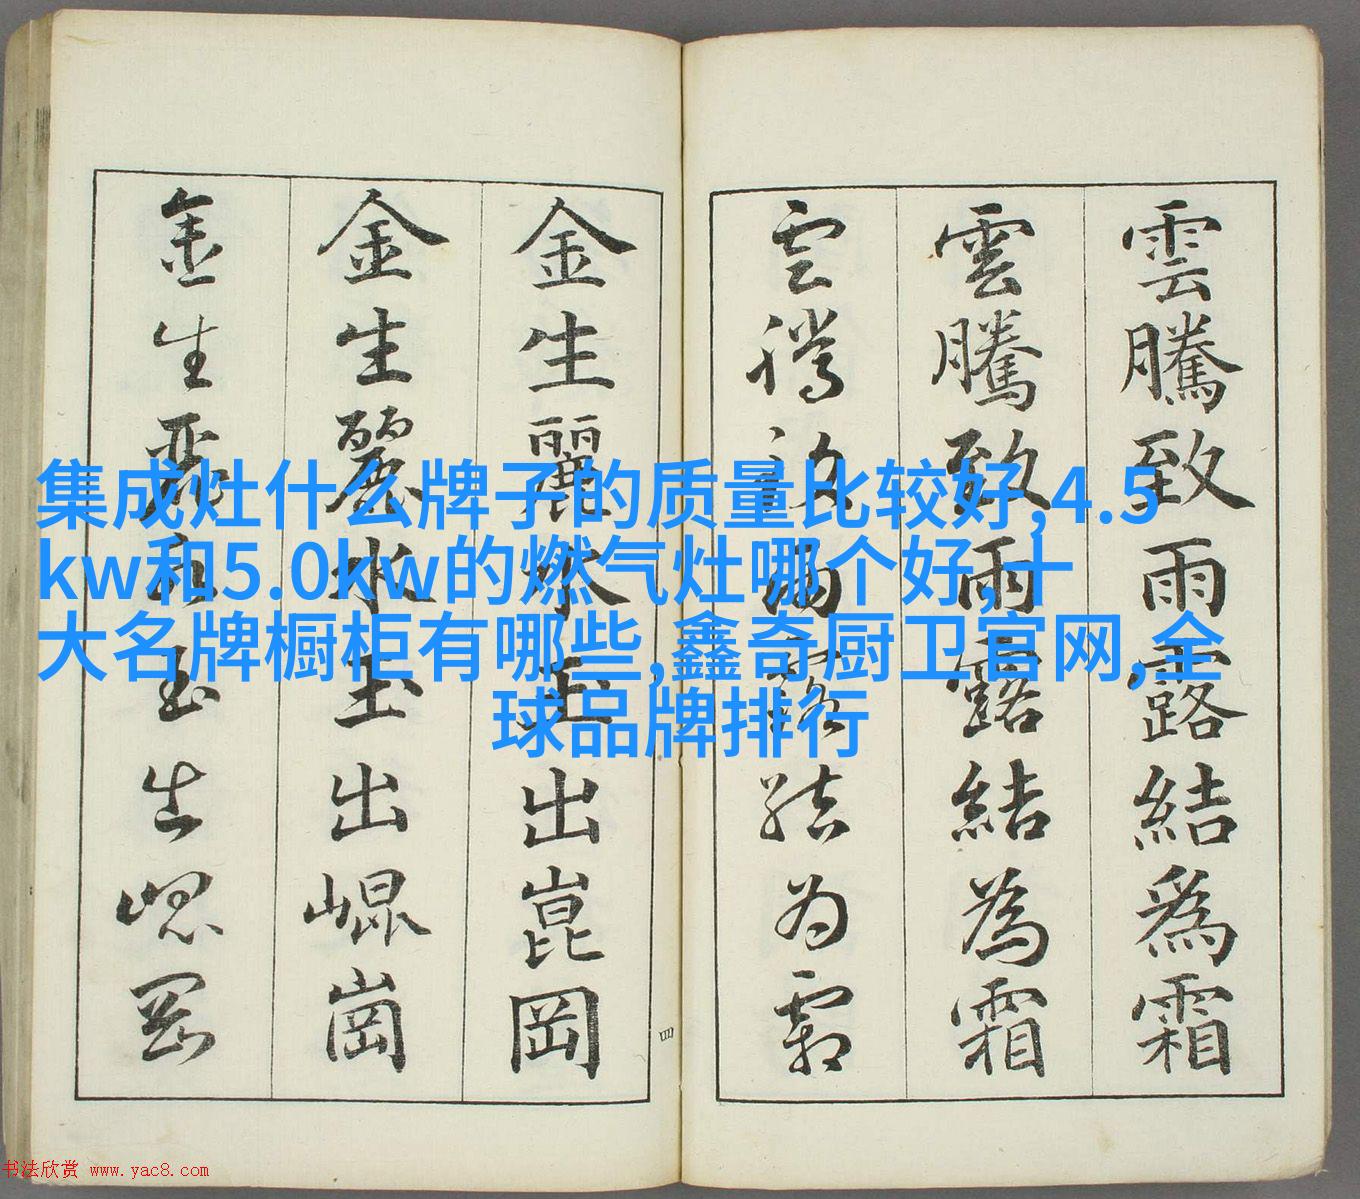 雲騰致雨露結爲霜
雲騰致雨露結為霜
雲騰致雨露結为霜
金生麗水玉出崑岡
金生麗水玉出崐崗
金生麗水玉出崐岡
四
集成灶什么牌子的质量比较好,4.5
kw和5.0kw的燃气灶哪个好,十
大名牌橱柜有哪些,鑫奇厨卫官网,全
球品牌排行
书法欣赏 www.yac8.com